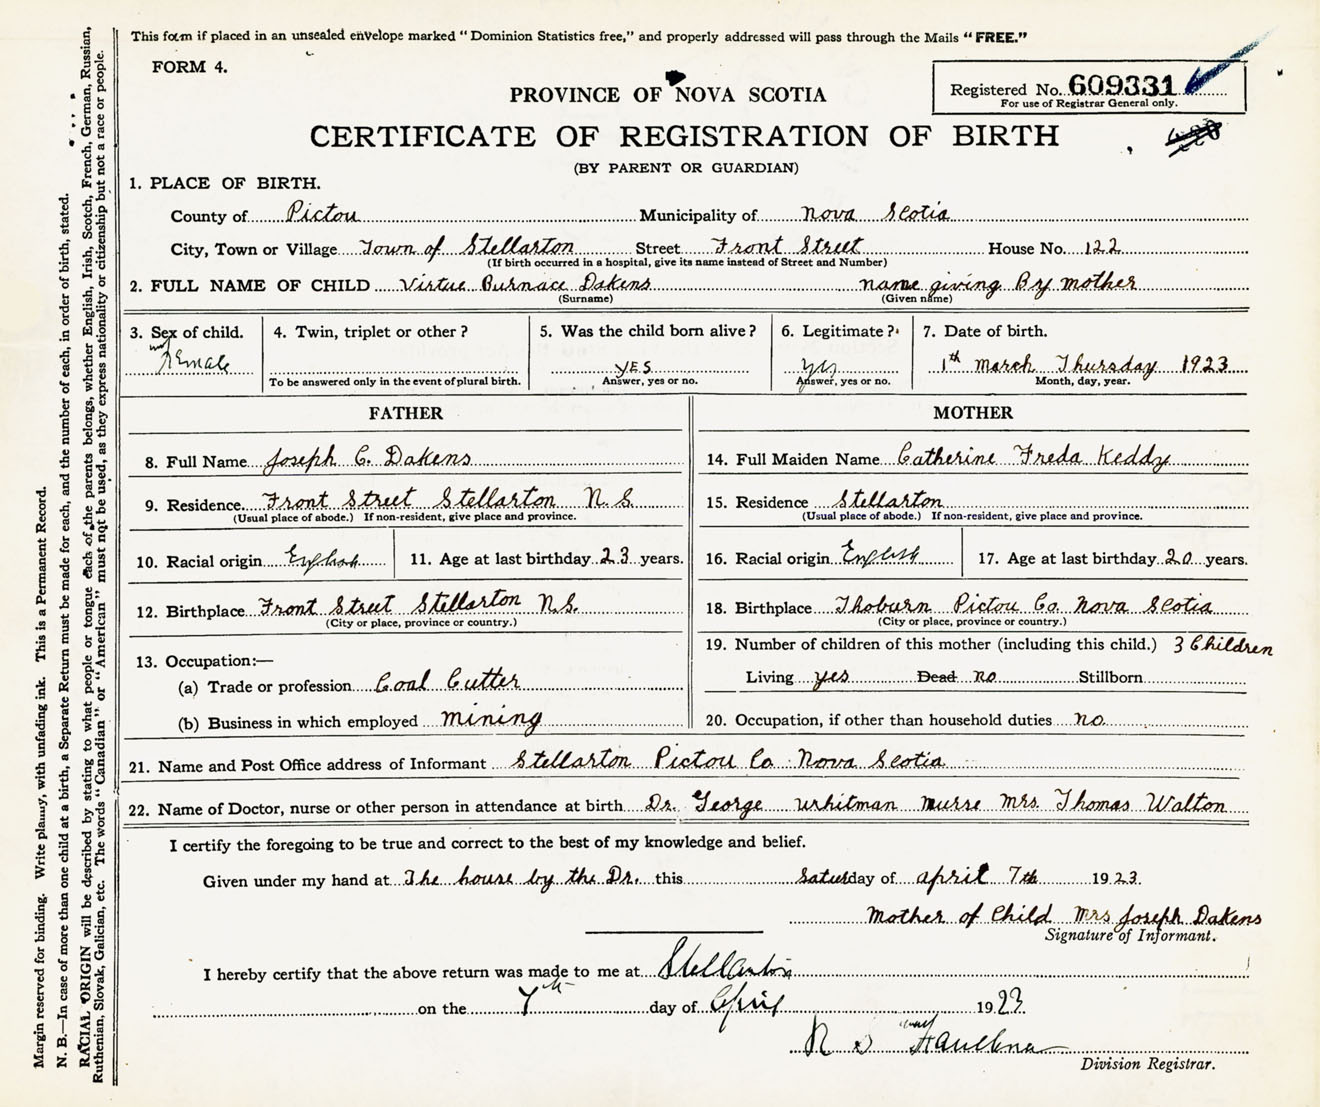 This form if placed in an unsealed envelope marked "Dominion Statistics free," and properly addressed will pass through the Mails "FREE."
FORM 4.
Registered No. 609331
For use of Registrar General only.
PROVINCE OF NOVA SCOTIA
CERTIFICATE OF REGISTRATION OF BIRTH
(BY PARENT OR GUARDIAN)
1. PLACE OF BIRTH.
County of Pictou Municipality of Nova Scotia
City, Town or Village Town of Stellarton Street Front Street House No. 122
(If birth occurred in a hospital, give its name instead of Street and Number)
2. FULL NAME OF CHILD Virtue Burnace Dakens name giving By mother
(Surname) (Given name)
3. Sex of child. 4. Twin, triplet or other? 5. Was the child born alive? 6. Legitimate? 7. Date of birth.
Female yes yes 1th March Thursday 1923
To be answered only in the event of plural birth. Answer, yes or no. Answer, yes or no. Month, day, year.
FATHER
8. Full Name Joseph C. Dakens
9. Residence Front Street Stellarton N.S.
(Usual place of abode.) If non-resident, give place and province.
10. Racial origin English 11. Age at last birthday 23 years.
12. Birthplace Front Street Stellarton N.S.
(City or place, province or country.)
13. Occupation:—
(a) Trade or profession Coal Cutter
(b) Business in which employed mining
MOTHER
14. Full Maiden Name Catherine Freda Keddy
15. Residence Stellarton
(Usual place of abode.) If non-resident, give place and province.
16. Racial origin English 17. Age at last birthday 20 years.
18. Birthplace Thoburn Pictou Co. Nova Scotia
(City or place, province or country.)
19. Number of children of this mother (including this child.) 3 Children
Living yes Dead no Stillborn
20. Occupation, if other than household duties no
21. Name and Post Office address of Informant Stellarton Pictou Co Nova Scotia
22. Name of Doctor, nurse or other person in attendance at birth Dr. George whitman nurse Mrs. Thomas Walton
I certify the foregoing to be true and correct to the best of my knowledge and belief.
Given under my hand at The house by the Dr. this Saturday of april 7th 1923
Mother of Child Mrs Joseph Dakens
Signature of Informant.
I hereby certify that the above return was made to me at Stellarton
on the 7th day of April 1923
Division Registrar.
Margin reserved for binding. Write plainly, with unfading ink. This is a Permanent Record.
N. B.—In case of more than one child at a birth, a Separate Return must be made for each, and the number of each, in order of birth, stated.
RACIAL ORIGIN will be described by stating to what people or tongue each of the parents belongs, whether English, Irish, Scotch, French, German, Russian,
Ruthenian, Slovak, Galician, etc. The words "Canadian" or "American" must not be used, as they express nationality or citizenship but not a race or people.